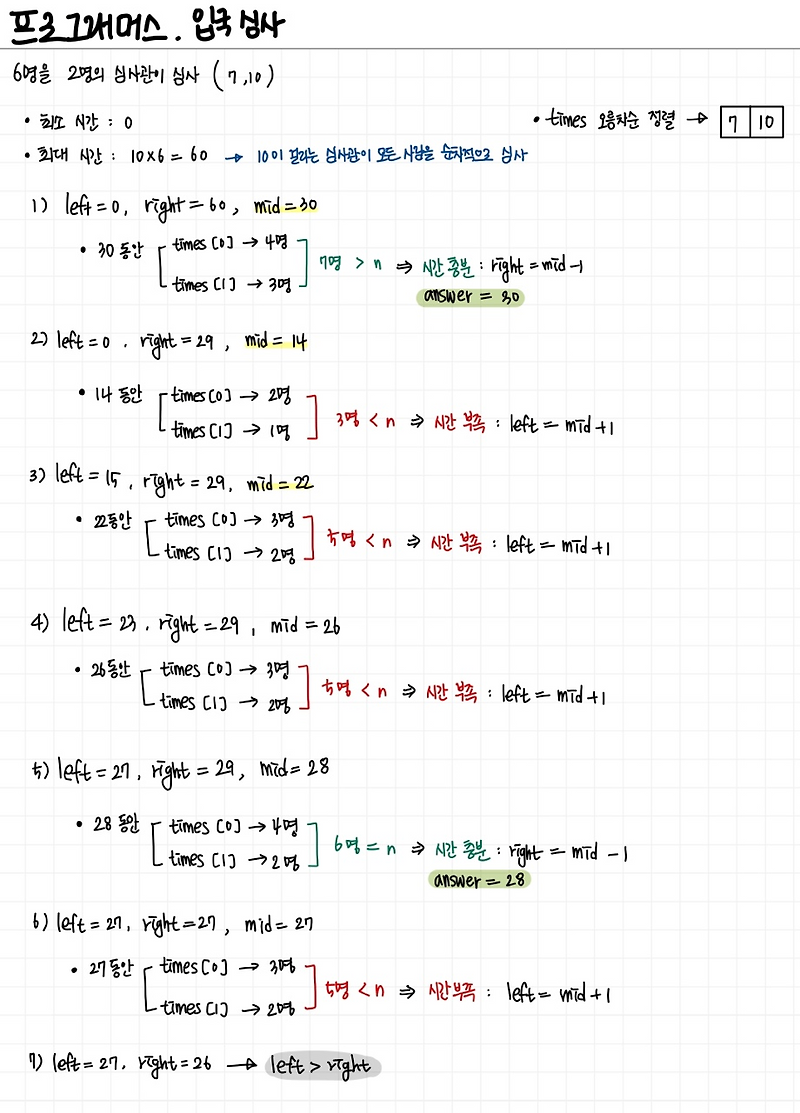 프로그래머스. 입국심사
6명을 2명의 심사관이 심사 (7,10)
• 최소 시간 : 0
• times 오름차순 정렬 → 7 10
• 최대 시간 : 10×6 = 60 → 10이 걸리는 심사관이 모든 사람을 순차적으로 심사
1) left=0, right=60, mid=30
• 30 동안 times[0] → 4명
times[1] → 3명
7명 > n ⇒ 시간 충분 : right = mid-1
answer = 30
2) left=0, right=29, mid=14
• 14 동안 times[0] → 2명
times[1] → 1명
3명 < n ⇒ 시간 부족 : left = mid+1
3) left=15, right=29, mid=22
• 22동안 times[0] → 3명
times[1] → 2명
5명 < n ⇒ 시간 부족 : left = mid+1
4) left=23, right=29, mid=26
• 26동안 times[0] → 3명
times[1] → 2명
5명 < n ⇒ 시간 부족 : left = mid+1
5) left=27, right=29, mid=28
• 28 동안 times[0] → 4명
times[1] → 2명
6명 = n ⇒ 시간 충분 : right = mid -1
answer = 28
6) left=27, right=27, mid=27
• 27동안 times[0] → 3명
times[1] → 2명
5명 < n ⇒ 시간부족 : left = mid+1
7) left=27, right=26 → left > right